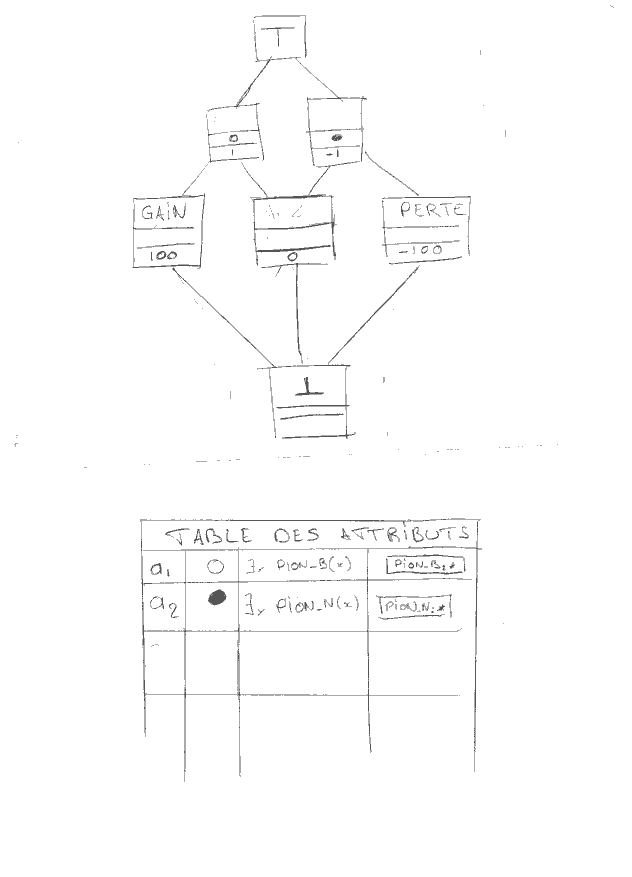 T
0
1
-1
GAIN
PERTE
100
0
-100
⊥
TABLE DES ATTRIBUTS
a1 ○ ∃x PION_B(x) PION_B:*
a2 ● ∃x PION_N(x) PION_N:*